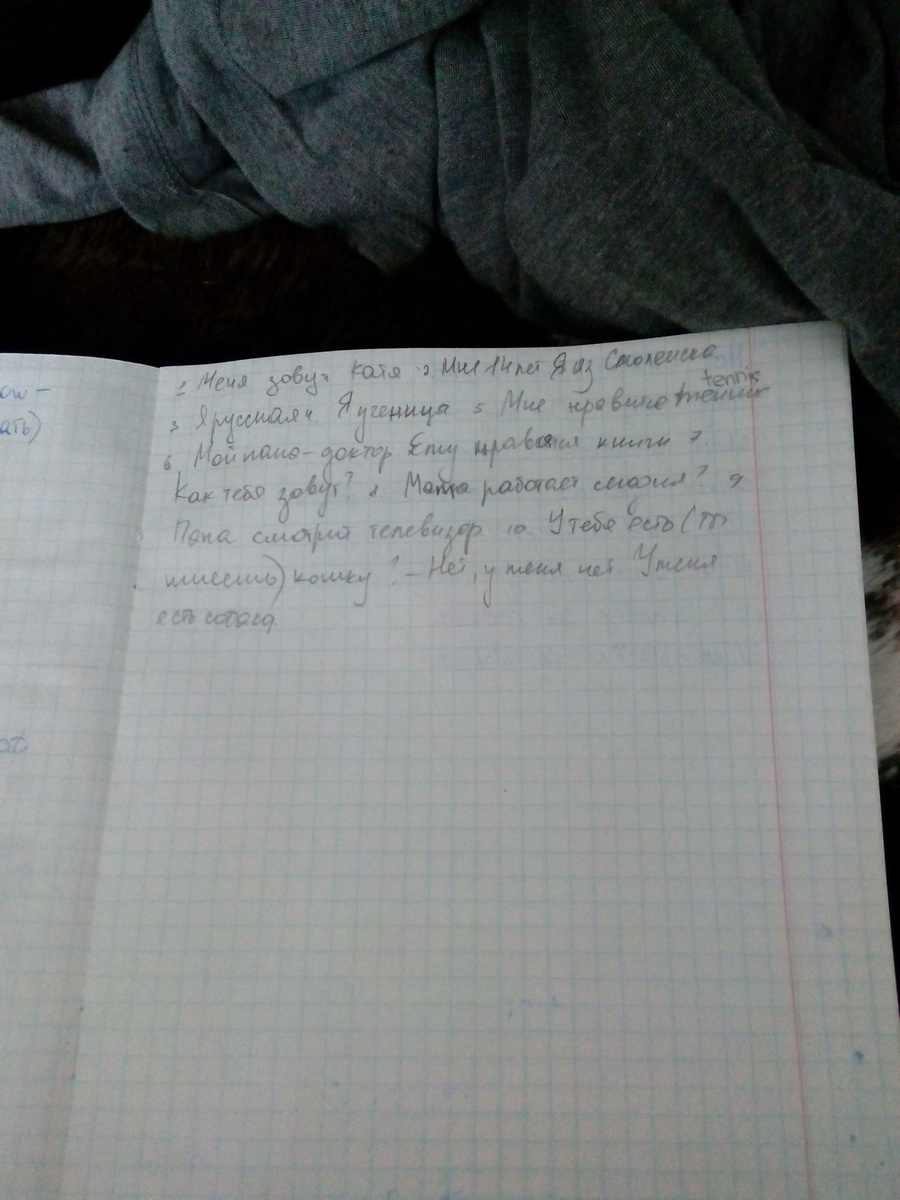 ow-
ать)
at
1 Меня зовут Катя 2 Мне 14 лет Я из Смоленска
tennis
3 Я русская 4 Я ученица 5 Мне нравится теннис
6 Мой папа - доктор Ему нравятся книги 7.
Как тебя зовут? 8 Мама работает ? 9
Папа смотрит телевизор 10 У тебя есть (ты
имеешь) кошку? - Нет, у меня нет У меня
есть собака